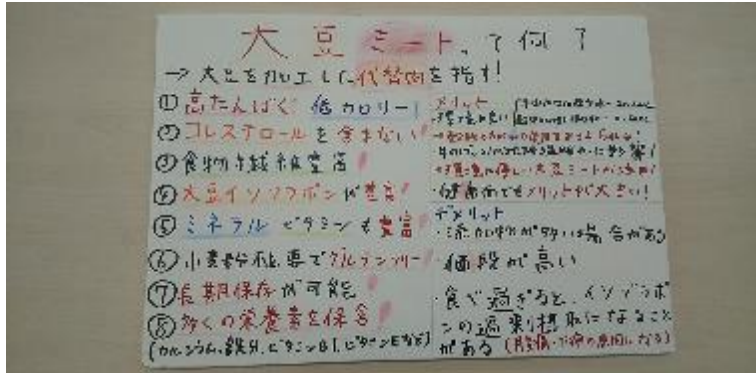 大豆ミートって何?
→大豆を加工した代替肉を指す!
①高たんぱく 低カロリー!
②コレステロールを含まない!
③食物繊維豊富!
④大豆イソフラボンが豊富!
⑤ミネラル ビタミンも豊富!
⑥小麦粉不要でグルテンフリー!
⑦長期保存が可能!
⑧多くの栄養素を保含!
(カルシウム、鉄分、ビタミンB1、ビタミンEなど)
メリット
・健康面でもメリットが大きい!
デメリット
・添加物が多い場合がある
・価段が高い
・食べ過ぎると、イソフラボ
ンの過剰摂取になること
がある(腹痛・下痢の原因になる)